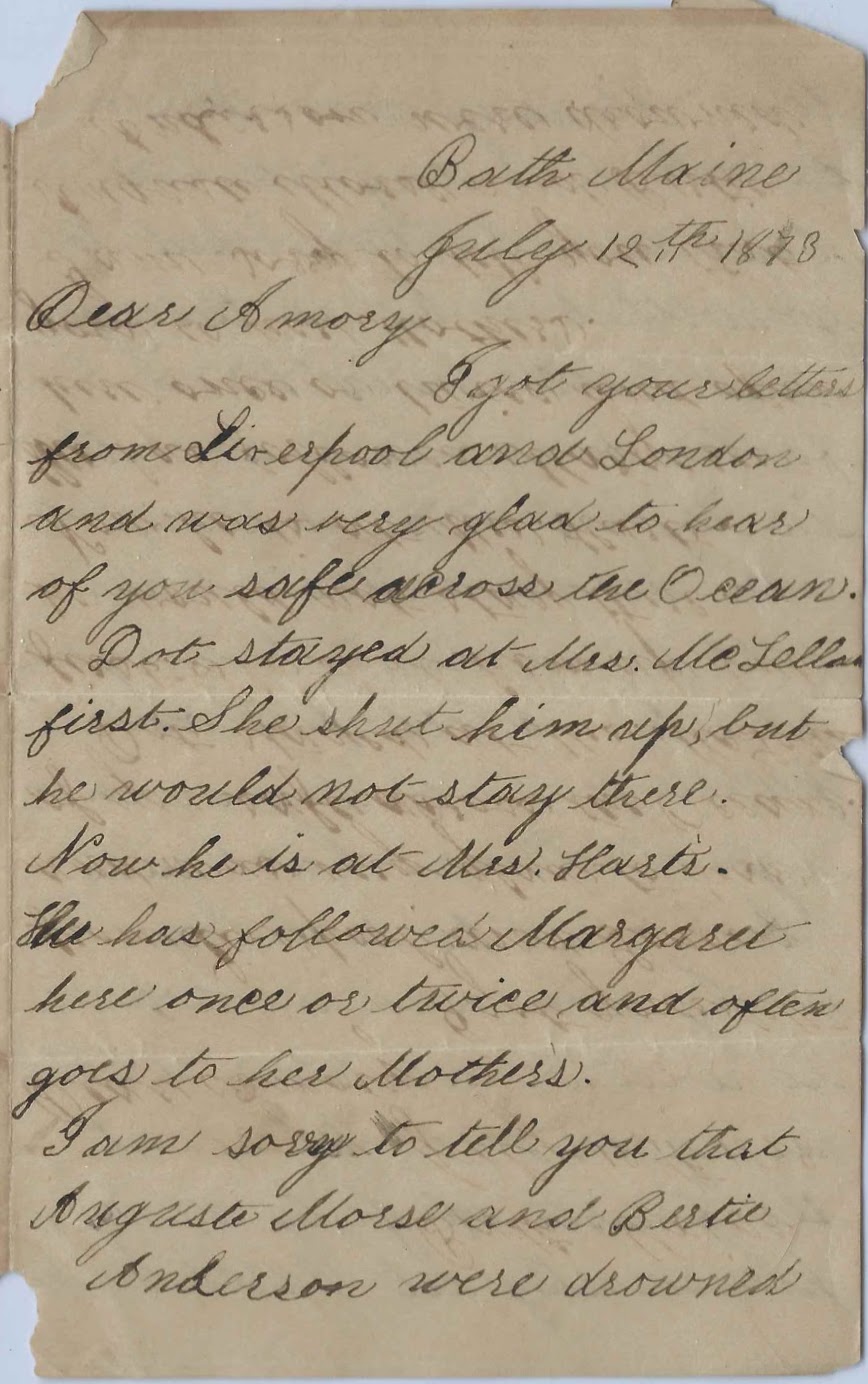 Bath Maine
July 12th 1873
Dear Amory
I got your letters
from Liverpool and London
and was very glad to hear
of you safe across the Ocean.
Dot stayed at Mrs. McLellan
first. She shut him up, but
he would not stay there.
Now he is at Mrs. Harts.
He has followed Margaret
here once or twice and often
goes to her Mothers.
I am sorry to tell you that
Auguste Morse and Bertie
Anderson were drowned